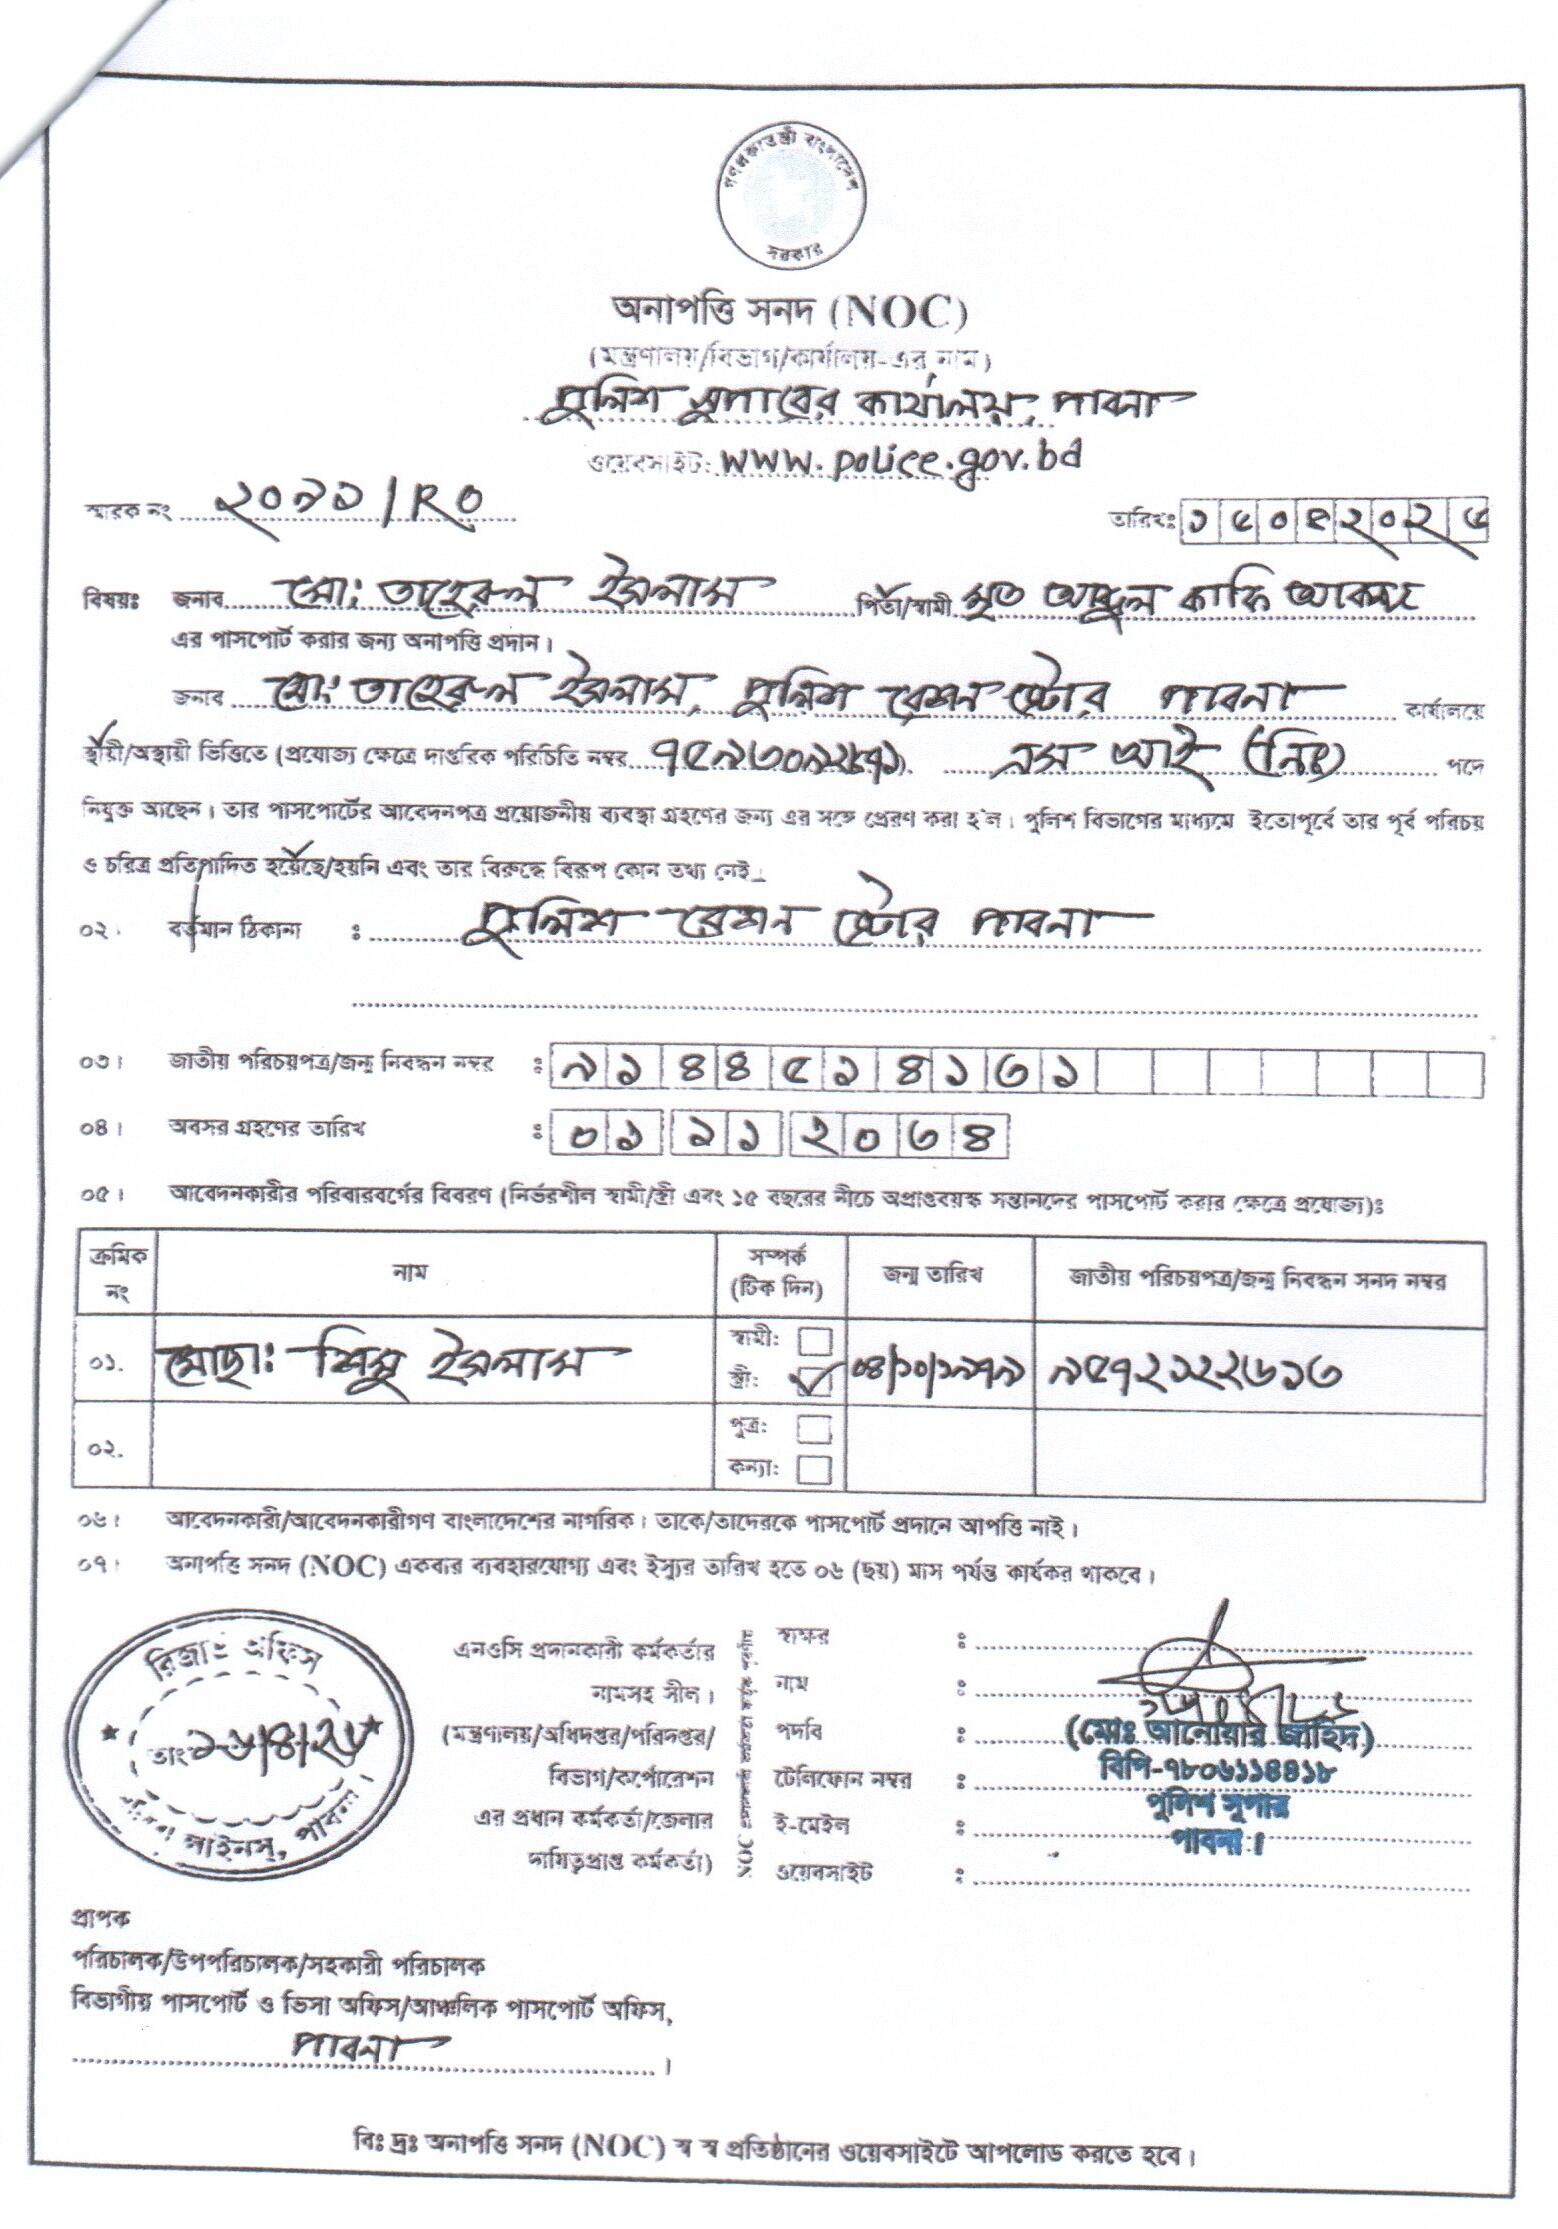 গণপ্রজাতন্ত্রী বাংলাদেশ
সরকার
অনাপত্তি সনদ (NOC)
(মন্ত্রণালয়/বিভাগ/কার্যালয়-এর নাম)
পুলিশ সুপারের কার্যালয়, পাবনা
ওয়েবসাইট: www.police.gov.bd
স্মারক নং ২০৯১/RO
তারিখঃ
বিষয়ঃ জনাব মো: তাহেরুল ইসলাম পিতা/স্বামী মৃত আব্দুল কাফি আকন্দ
এর পাসপোর্ট করার জন্য অনাপত্তি প্রদান।
জনাব মো: তাহেরুল ইসলাম, পুলিশ রেশন স্টোর পাবনা কার্যালয়ে
স্থায়ী/অস্থায়ী ভিত্তিতে (প্রযোজ্য ক্ষেত্রে দাপ্তরিক পরিচিতি নম্বর ). এস আই (নিঃ) পদে
নিযুক্ত আছেন। তার পাসপোর্টের আবেদনপত্র প্রয়োজনীয় ব্যবস্থা গ্রহণের জন্য এর সঙ্গে প্রেরণ করা হ'ল। পুলিশ বিভাগের মাধ্যমে ইতোপূর্বে তার পূর্ব পরিচয়
ও চরিত্র প্রতিপাদিত হয়েছে/হয়নি এবং তার বিরুদ্ধে বিরূপ কোন তথ্য নেই।
০২। বর্তমান ঠিকানা : পুলিশ রেশন স্টোর পাবনা
০৩। জাতীয় পরিচয়পত্র/জন্ম নিবন্ধন নম্বর : ৯১৪৪৫১৪১৩১
০৪। অবসর গ্রহণের তারিখ : ০১ ১১ ২০৩৪
০৫। আবেদনকারীর পরিবারবর্গের বিবরণ (নির্ভরশীল স্বামী/স্ত্রী এবং ১৫ বছরের নীচে অপ্রাপ্তবয়স্ক সন্তানদের পাসপোর্ট করার ক্ষেত্রে প্রযোজ্য)ঃ
ক্রমিক নং নাম সম্পর্ক (টিক দিন) জন্ম তারিখ জাতীয় পরিচয়পত্র/জন্ম নিবন্ধন সনদ নম্বর
০১. মোছা: শিমু ইসলাম স্বামী: স্ত্রী: ০৪/১০/১৯৭৯ ৯৫৭২১২২৬১৩
০২. পুত্র: কন্যা:
০৬। আবেদনকারী/আবেদনকারীগণ বাংলাদেশের নাগরিক। তাকে/তাদেরকে পাসপোর্ট প্রদানে আপত্তি নাই।
০৭। অনাপত্তি সনদ (NOC) একবার ব্যবহারযোগ্য এবং ইস্যুর তারিখ হতে ০৬ (ছয়) মাস পর্যন্ত কার্যকর থাকবে।
রিজার্ভ অফিস
তাং ১৬/৪/২৬
লাইনস্, পাবনা।
এনওসি প্রদানকারী কর্মকর্তার
নামসহ সীল।
(মন্ত্রণালয়/অধিদপ্তর/পরিদপ্তর/
বিভাগ/কর্পোরেশন
এর প্রধান কর্মকর্তা/জেলার
দায়িত্বপ্রাপ্ত কর্মকর্তা)
NOC
স্বাক্ষর :
নাম :
পদবি : (মোঃ আনোয়ার জাহিদ)
বিপি-৭৮০৬১১৪৪১৮
টেলিফোন নম্বর :
পুলিশ সুপার
ই-মেইল : পাবনা।
ওয়েবসাইট :
প্রাপক
পরিচালক/উপপরিচালক/সহকারী পরিচালক
বিভাগীয় পাসপোর্ট ও ভিসা অফিস/আঞ্চলিক পাসপোর্ট অফিস,
পাবনা।
বিঃ দ্রঃ অনাপত্তি সনদ (NOC) স্ব স্ব প্রতিষ্ঠানের ওয়েবসাইটে আপলোড করতে হবে।